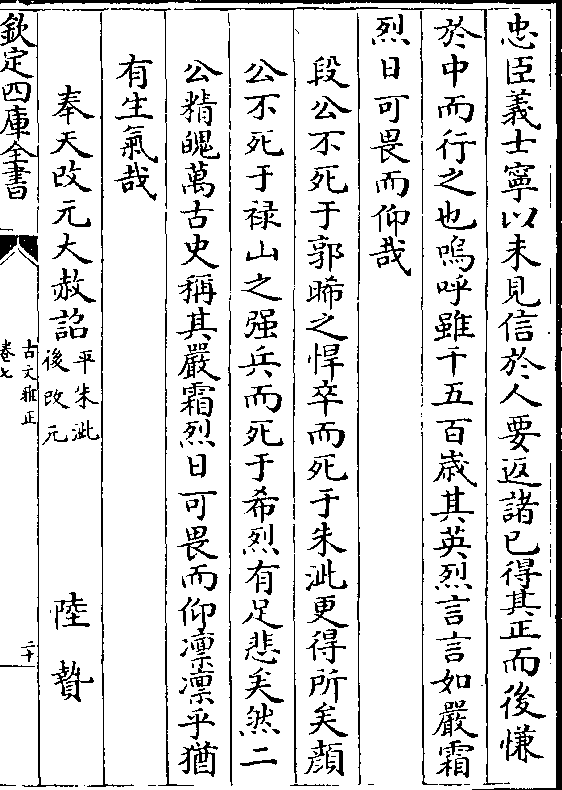 忠臣義士寧以未見信於人要返諸已得其正而後慊
於中而行之也嗚呼雖千五百歳其英烈言言如嚴霜
烈日可畏而仰哉
段公不死于郭晞之悍卒而死于朱泚更得所矣顔
公不死于禄山之强兵而死于希烈有足悲矣然二
公精魄萬古史稱其嚴霜烈日可畏而仰凛凛乎猶
有生氣哉
奉天改元大赦詔 平朱泚後改元 陸贄
欽定四庫全書 古文雅正 卷七 二十